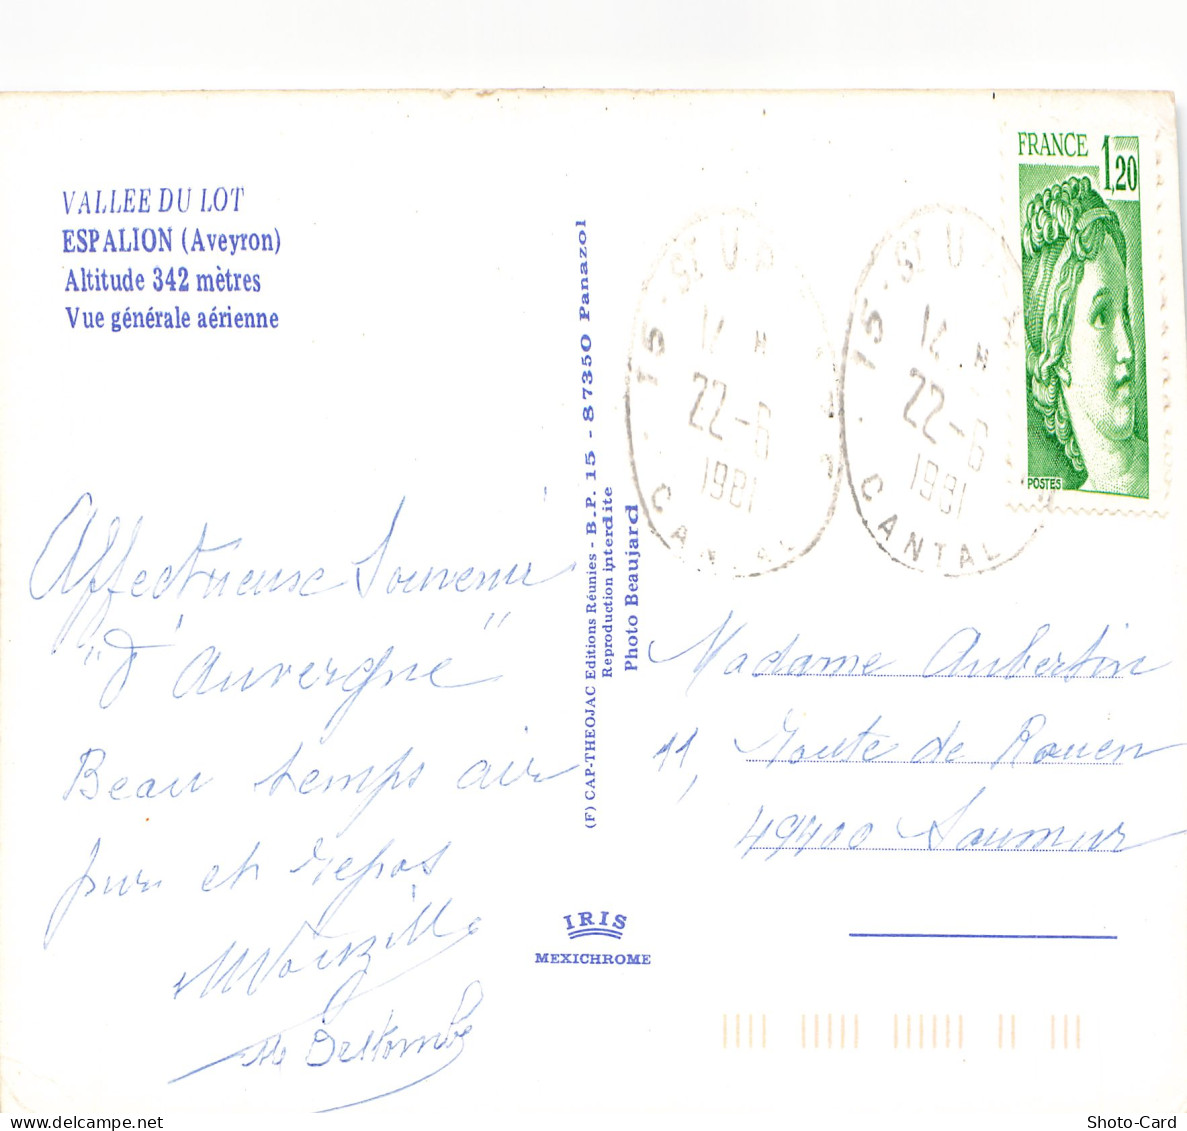 VALLEE DU LOT
ESPALION (Aveyron)
Altitude 342 mètres
Vue générale aérienne
Affectueux Souvenir
"d'Auvergne"
Beau temps air
pur et repos
(F) CAP-THEOJAC Editions Réunies - B.P. 15 - 87350 Panazol
Reproduction interdite
Photo Beaujard
IRIS
MEXICHROME
FRANCE 1,20
POSTES
15 - St U
12 H
22-6
1981
CANTAL
15 - St U
12 H
22-6
1981
CANTAL
Madame Aubertin
11, Route de Rouen
49400 Saumur
Shoto-Card